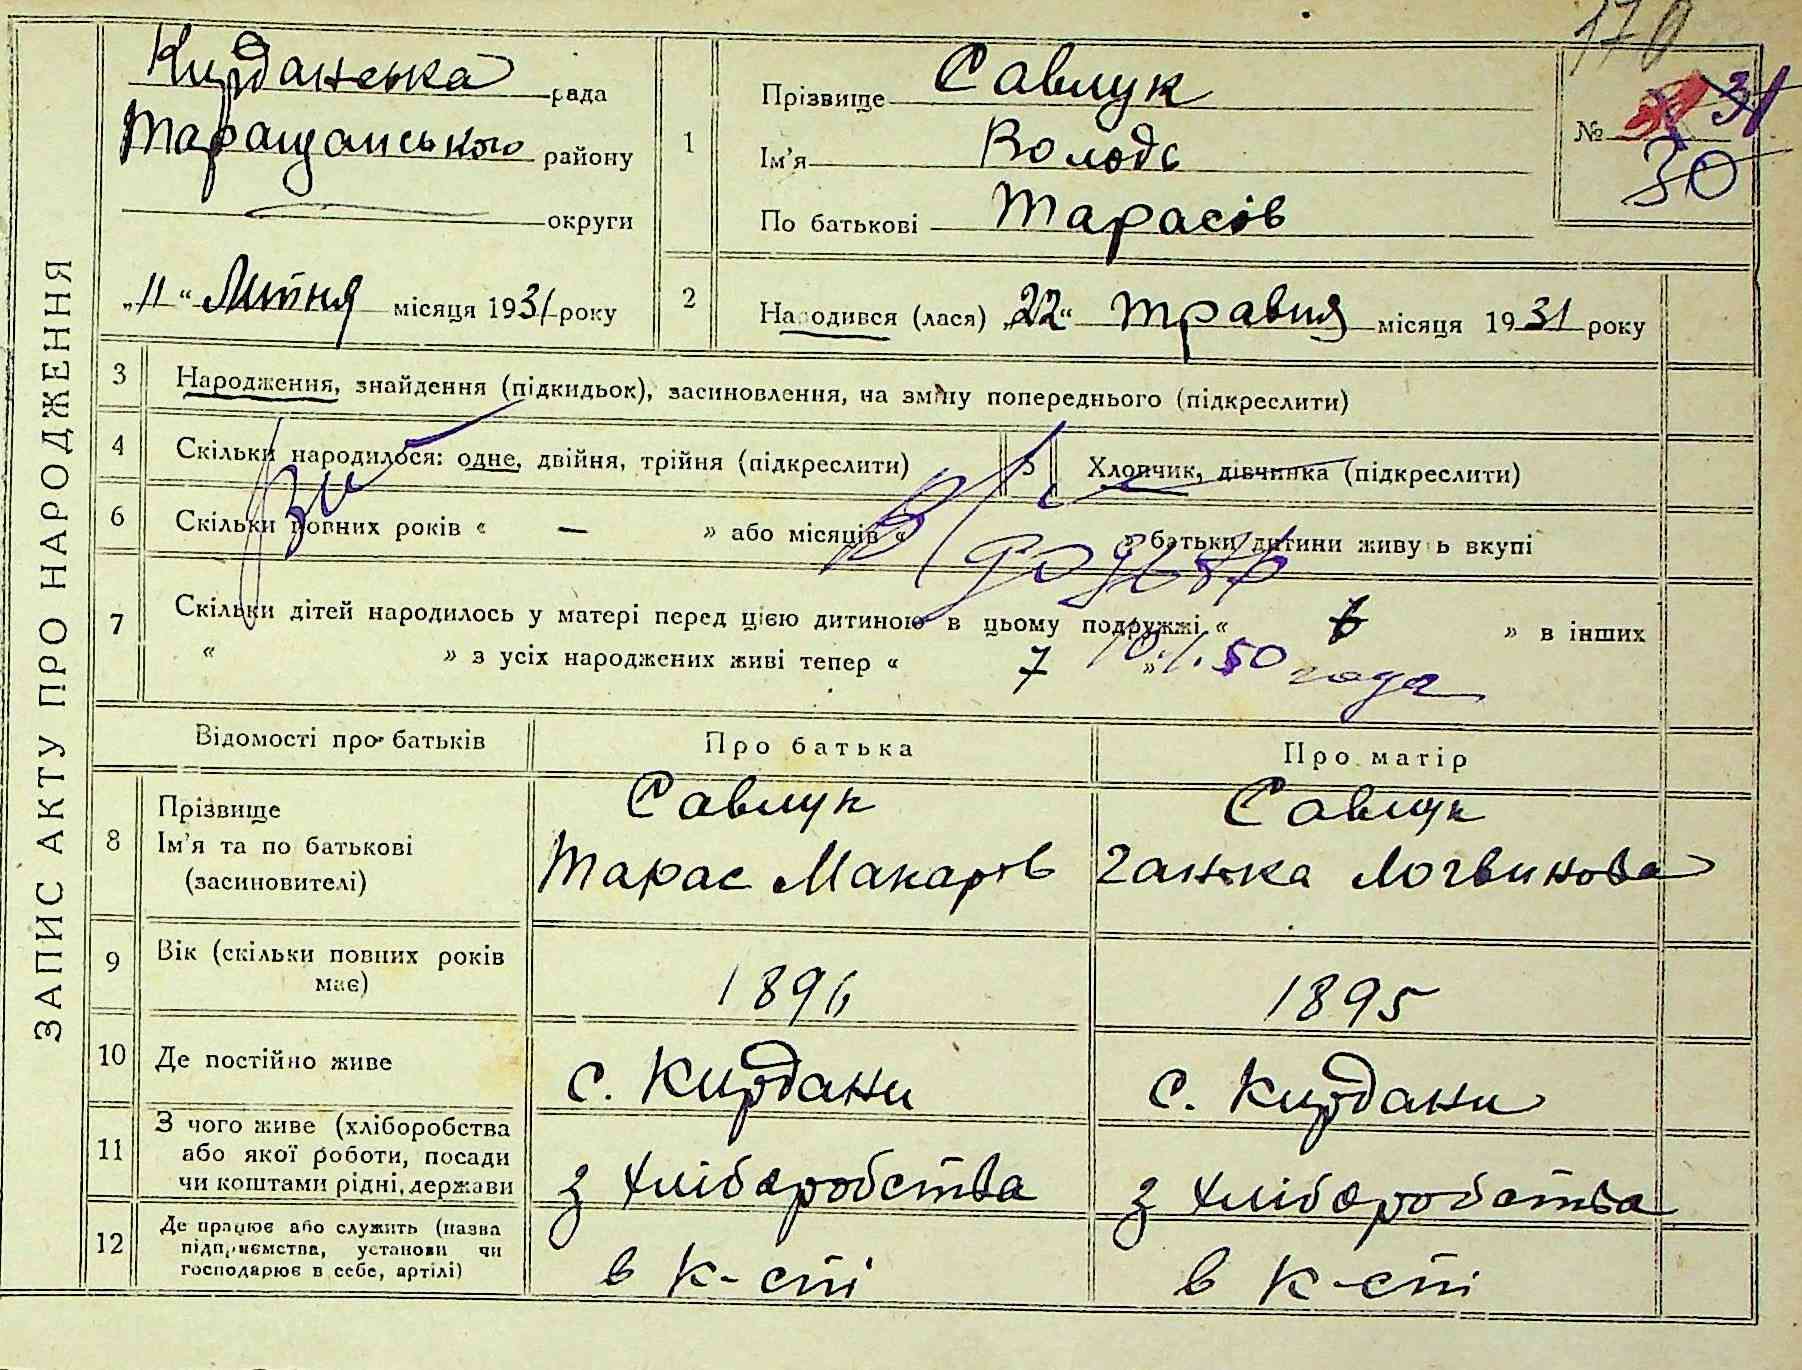 ЗАПИС АКТУ ПРО НАРОДЖЕННЯ
170
Кирданська рада
Таращанського району
округи
„11“ Литня місяця 1931 року
1
Прізвище Савлук
Ім'я Володь
По батькові Тарасів
№ 31
30
2
Народився (лася) „22“ травня місяця 1931 року
3 Народження, знайдення (підкидьок), засиновлення, на зміну попереднього (підкреслити)
4 Скільки народилося: одне, двійня, трійня (підкреслити)
5 Хлопчик, дівчинка (підкреслити)
6 Скільки повних років « — » або місяців « » батьки дитини живуть вкупі
7 Скільки дітей народилось у матері перед цією дитиною в цьому подружжі « 6 » в інших
« » з усіх народжених живі тепер « 7 »
10.1.50 года
Відомості про батьків Про батька Про матір
8 Прізвище
Ім'я та по батькові
(засиновителі)
Савлук
Тарас Макарів
Савлук
Ганька Логвинова
9 Вік (скільки повних років
має)
1896
1895
10 Де постійно живе с. Кирдани с. Кирдани
11 З чого живе (хліборобства
або якої роботи, посади
чи коштами рідні, держави
з хліборобства
з хліборобства
12 Де працює або служить (назва
підприємства, установи чи
господарює в себе, артілі)
в к-сті
в к-сті